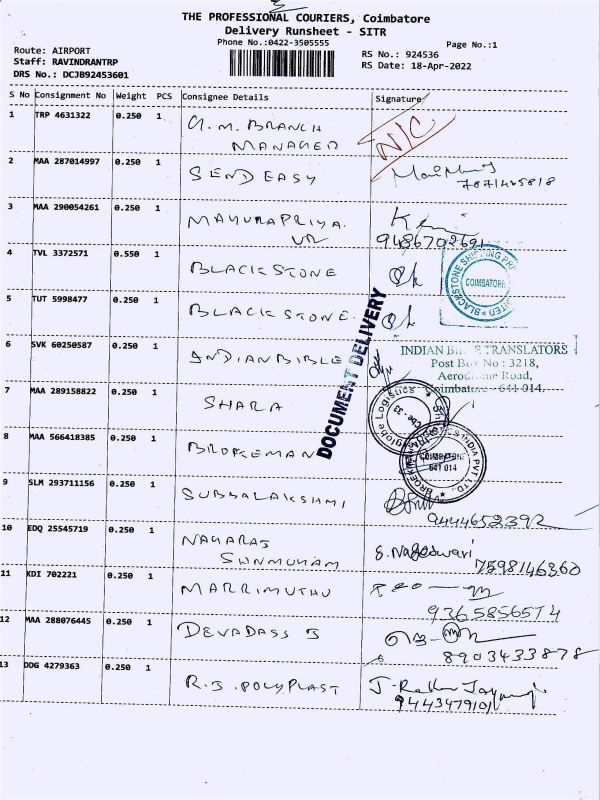 THE PROFESSIONAL COURIERS, Coimbatore
Delivery Runsheet - SITR
Phone No.:0422-3505555
Page No.:1
Route: AIRPORT
Staff: RAVINDRANTRP
DRS No.: DCJB92453601
RS No.: 924536
RS Date: 18-Apr-2022
S No Consignment No Weight PCS Consignee Details Signature
1 TRP 4631322 0.250 1 G.M. BRANCH N/C
MANAGER
2 MAA 287014997 0.250 1 SENDEASY
7871485818
3 MAA 290054261 0.250 1 MAYURAPRIYA.
VR
9486702691
4 TVL 3372571 0.550 1 BLACKSTONE
BLACKSTONE SHIPPING
COIMBATORE
5 TUT 5998477 0.250 1 BLACKSTONE
DOCUMENT DELIVERY
6 SVK 60250587 0.250 1 INDIANBIBLE
INDIAN TRANSLATORS
Post Box No : 3218,
Aerodrome Road,
Coimbatore - 641 014.
7 MAA 289158822 0.250 1 SHARA
Logistics
Cbe-33
8 MAA 566418385 0.250 1 BROEKMAN
INDIA PVT LTD
COIMBATORE
641 014
9 SLM 293711156 0.250 1 SUBBALAKSHMI
9444652392
10 EDQ 25545719 0.250 1 NAGARAJ S. Nageswari
SHNMUHAM 7598146360
11 KDI 702221 0.250 1 MARRIMUTHU
9365856574
12 MAA 288076445 0.250 1 DEVADASS J
8903433878
13 DDG 4279363 0.250 1 R.J. POLYPLAST
9443479101